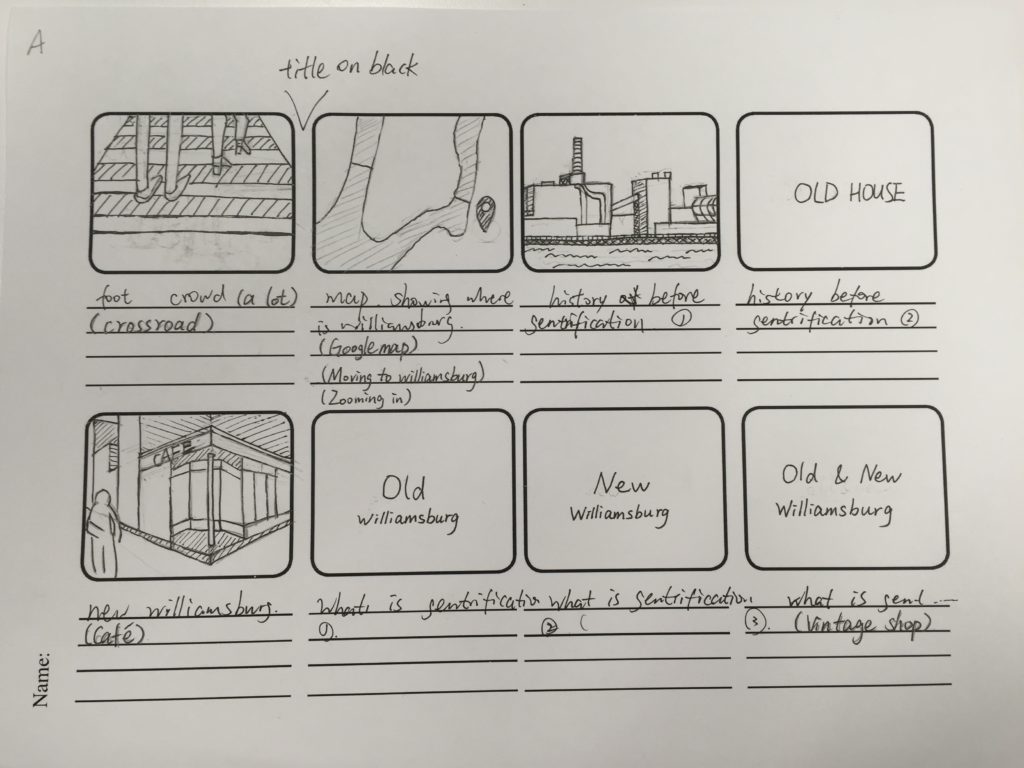 A
title on black
OLD HOUSE
foot crowd (a lot)
(crossroad)
map showing where
is williamsburg.
(Google map)
(Moving to williamsburg)
(Zooming in)
history before
sentrification ①
history before
sentrification ②
CAFE
Old
Williamsburg
New
Williamsburg
Old & New
Williamsburg
new williamsburg.
(Café)
is sentrificatio
①.
what is sentrification
② (
what is sent ----
③. (Vintage shop)
Name: